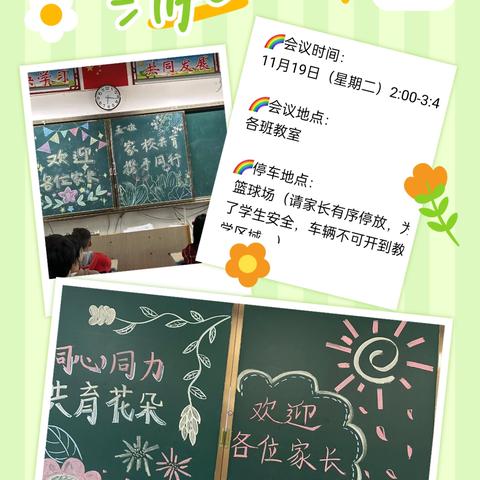 学习
共同发展
欢迎
各位家长
家校共育
携手同行
🌈会议时间：
11月19日（星期二）2:00-3:4
🌈会议地点：
各班教室
🌈停车地点：
篮球场（请家长有序停放，为
了学生安全，车辆不可开到教
学区域
同心同力
共育花朵
欢迎
各位家长